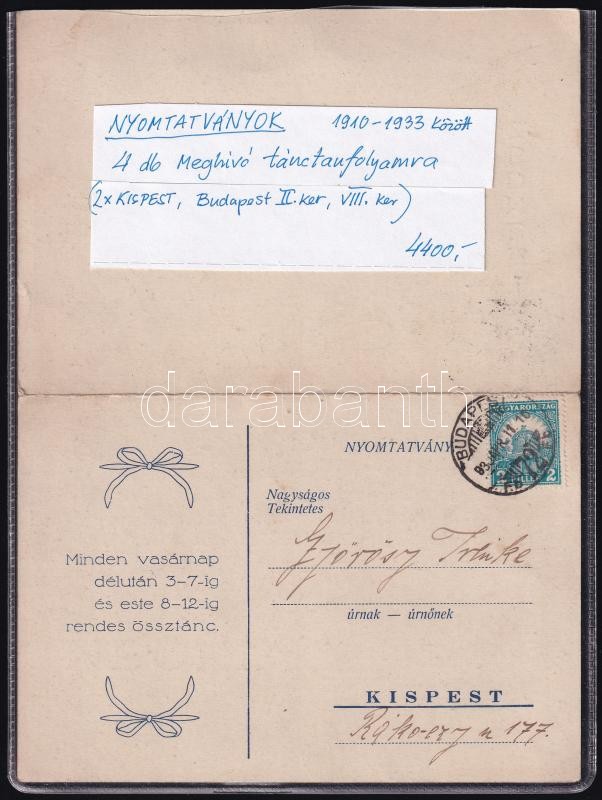 NYOMTATVÁNYOK 1910-1933 között
4 db Meghívó tánctanfolyamra
(2x KISPEST, Budapest II. ker, VIII. ker)
4400,-
darabanth
BUDAPE
MAGYARORSZÁG
2 2
NYOMTATVÁNY
Nagyságos
Tekintetes
Györösy Irénke
úrnak — úrnőnek
KISPEST
Rákoczy u 177.
Minden vasárnap
délután 3-7-ig
és este 8-12-ig
rendes össztánc.